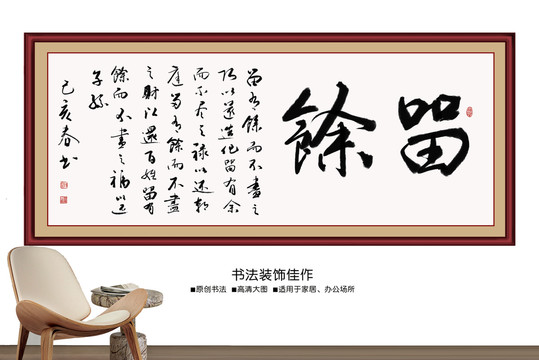 留餘
留有餘而不盡之
巧以還造化留有余
而不尽之禄以还朝
庭留有餘而不盡
之財以還百姓留有
餘而不盡之福以还
子孫
己亥春书
书法装饰佳作
■原创书法 ■高清大图 ■适用于家居、办公场所